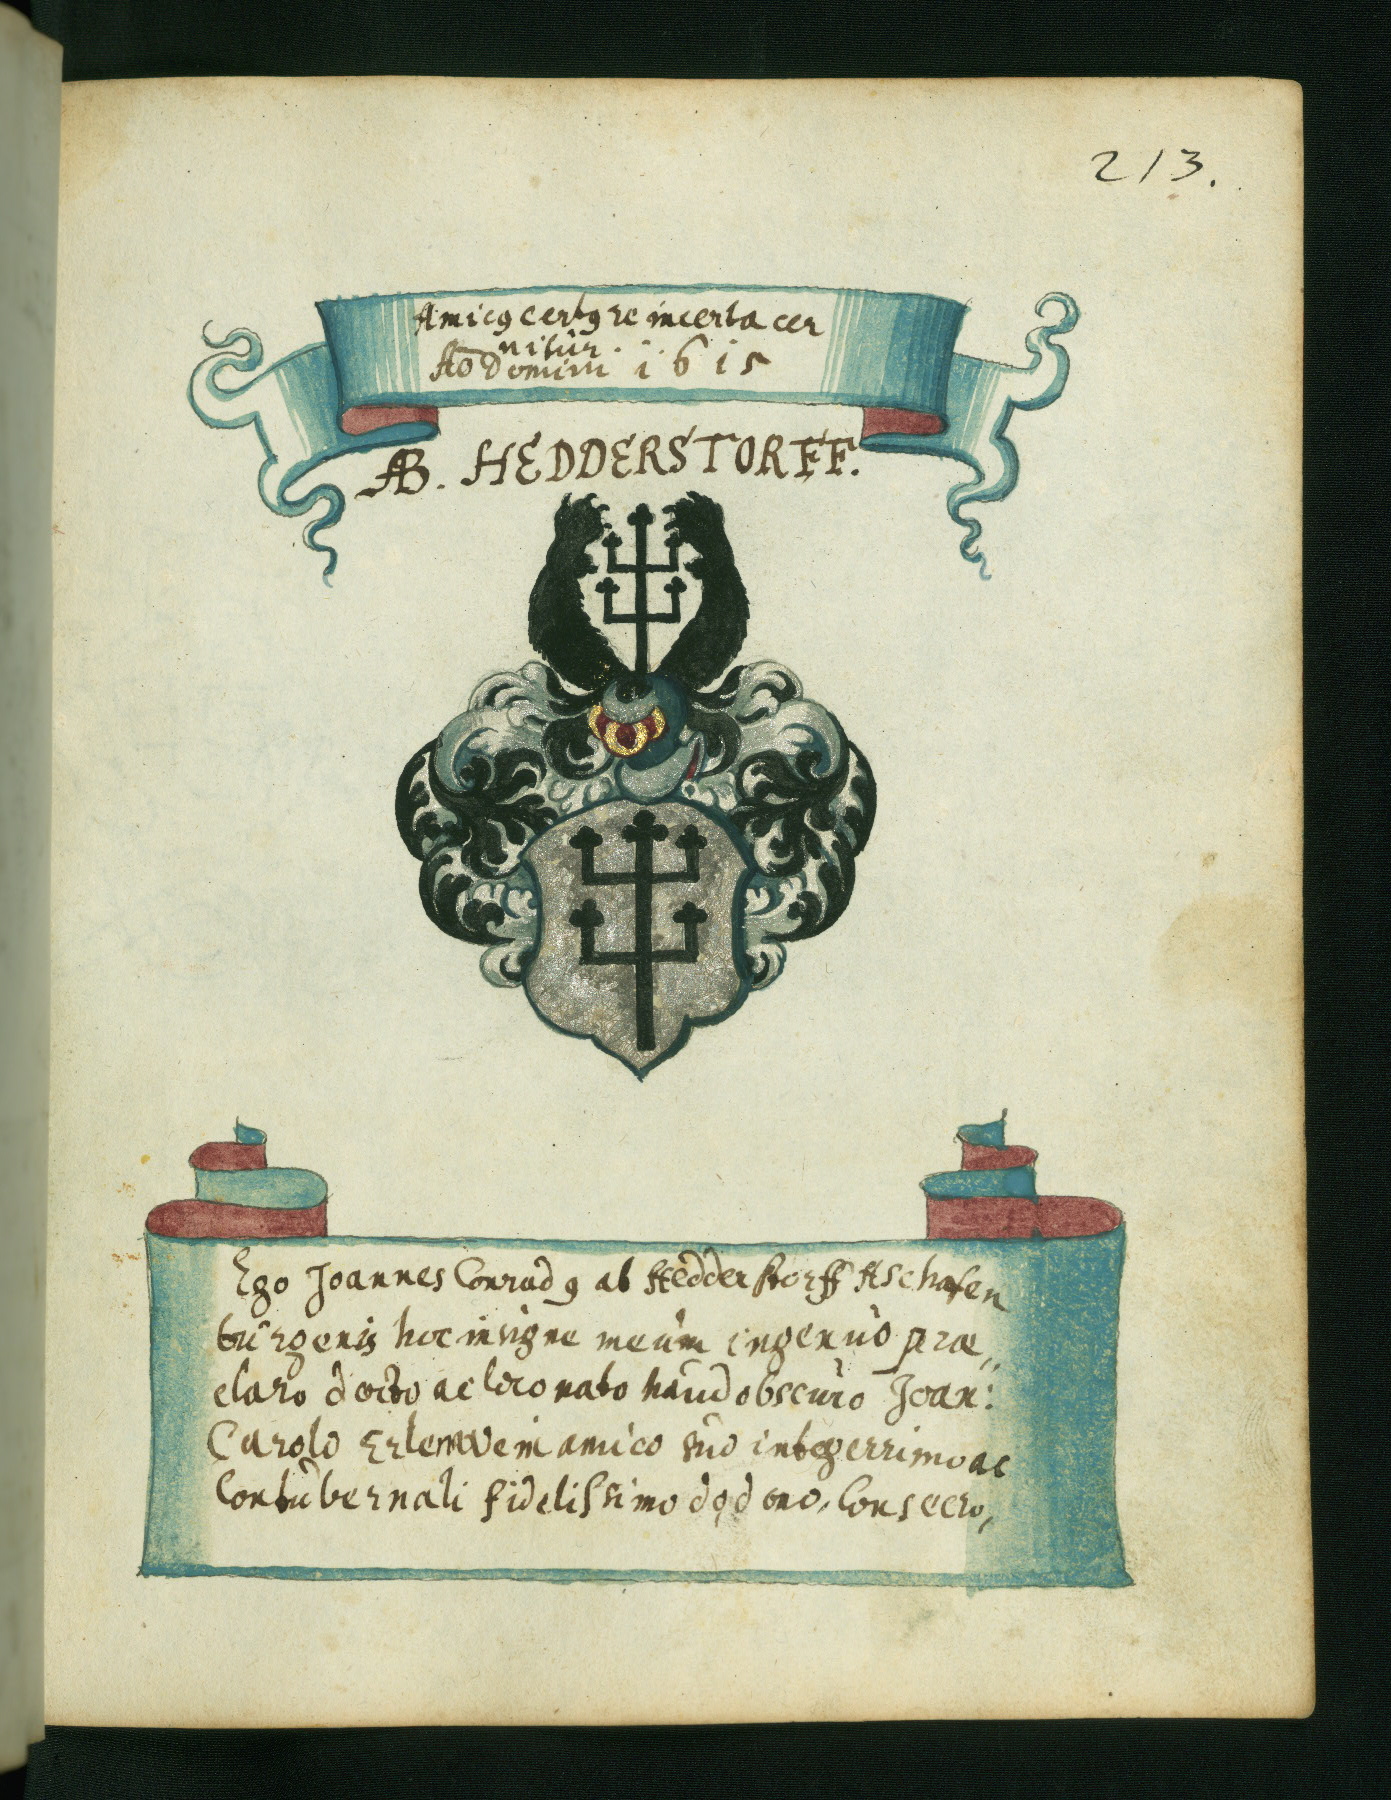 213.
Amicꝰ certꝰ re incerta cer
nitur.
Ao Domini 1615
AB. HEDDERSTORFF.
Ego Joannes Conradꝰ ab Hedderstorff Aschafen
burgensis hoc insigne meum ingenuo præ,,
claro docto ac loco nato haud obscuro Joan:
Carolo Erlenwein amico suo integerrimo ac
Contubernali fidelissimo do dono, Consecro,